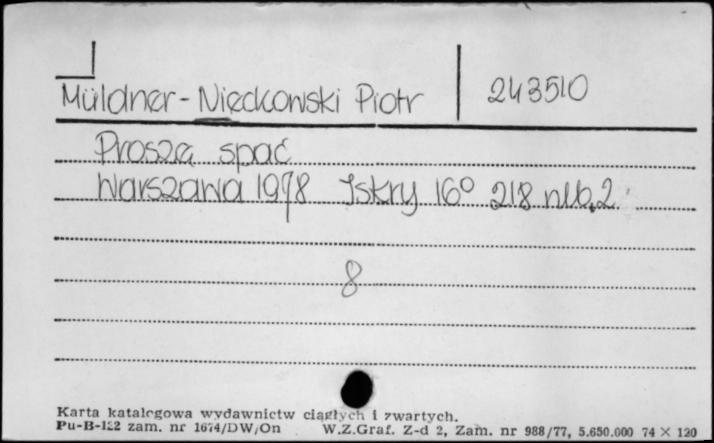 Müldner-Niećkowski Piotr 243510
Proszę spać
Warszawa 1978 Iskry 16° 218 nlb.2
8
Karta katalogowa wydawnictw ciągłych i zwartych.
Pu-B-122 zam. nr 1674/DW/On W.Z.Graf. Z-d 2, Zam. nr 988/77, 5.650.000 74 × 120